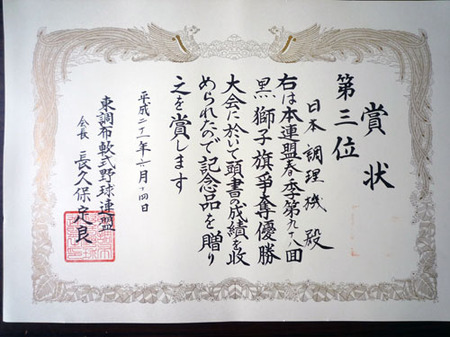 賞状
第三位
日本調理機 殿
右は本連盟春季第九八回
黒獅子旗争奪優勝
大会に於いて頭書の成績を収
められたので記念品を贈り
之を賞します
平成二十一年六月十四日
東調布軟式野球連盟
会長 長久保定良